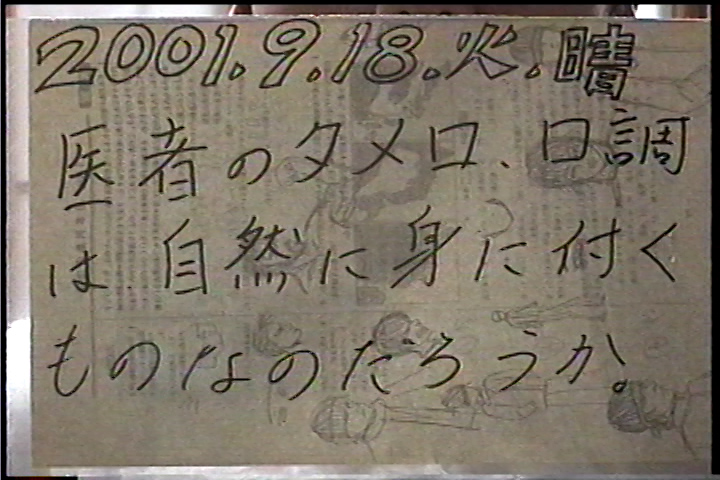 2001.9.18.火.晴
医者のタメ口、口調
は自然に身に付く
ものなのだろうか。